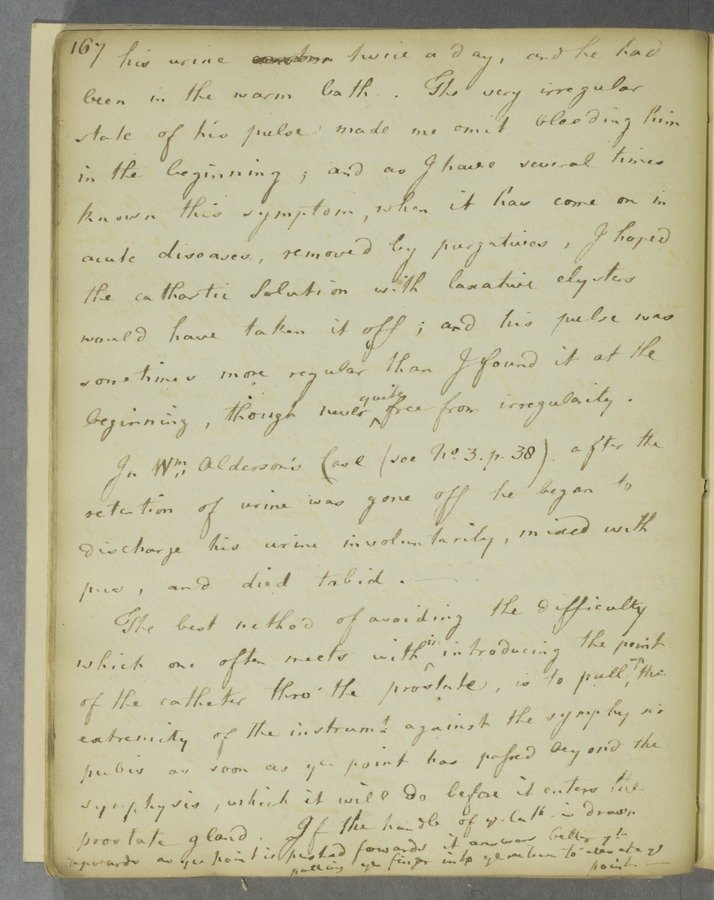 167 his urine twice a day, and he had
been in the warm bath. The very irregular
state of his pulse made me omit bleeding him
in the beginning; and as I have several times
known this symptom, when it has come on in
acute diseases, removed by purgatives, I hoped
the cathartic Solution with laxative clysters
would have taken it off; and his pulse was
sometimes more regular than I found it at the
beginning, though never quite free from irregularity.
In Wm. Alderson's Case (see No. 3. p. 38) after the
retention of urine was gone off he began to
discharge his urine involuntarily, mixed with
pus, and died tabid.
The best method of avoiding the difficulty
which one often meets with in introducing the point
of the catheter thro' the prostate, is to pull up the
extremity of the instrumt. against the symphysis
pubis as soon as ye point has passed beyond the
symphysis, which it will do before it enters the
prostate gland. If the handle of ye cath. is drawn
upwards as ye point is pushed forwards it answers better yn
putting ye finger into ye rectum to elevate ye
point.